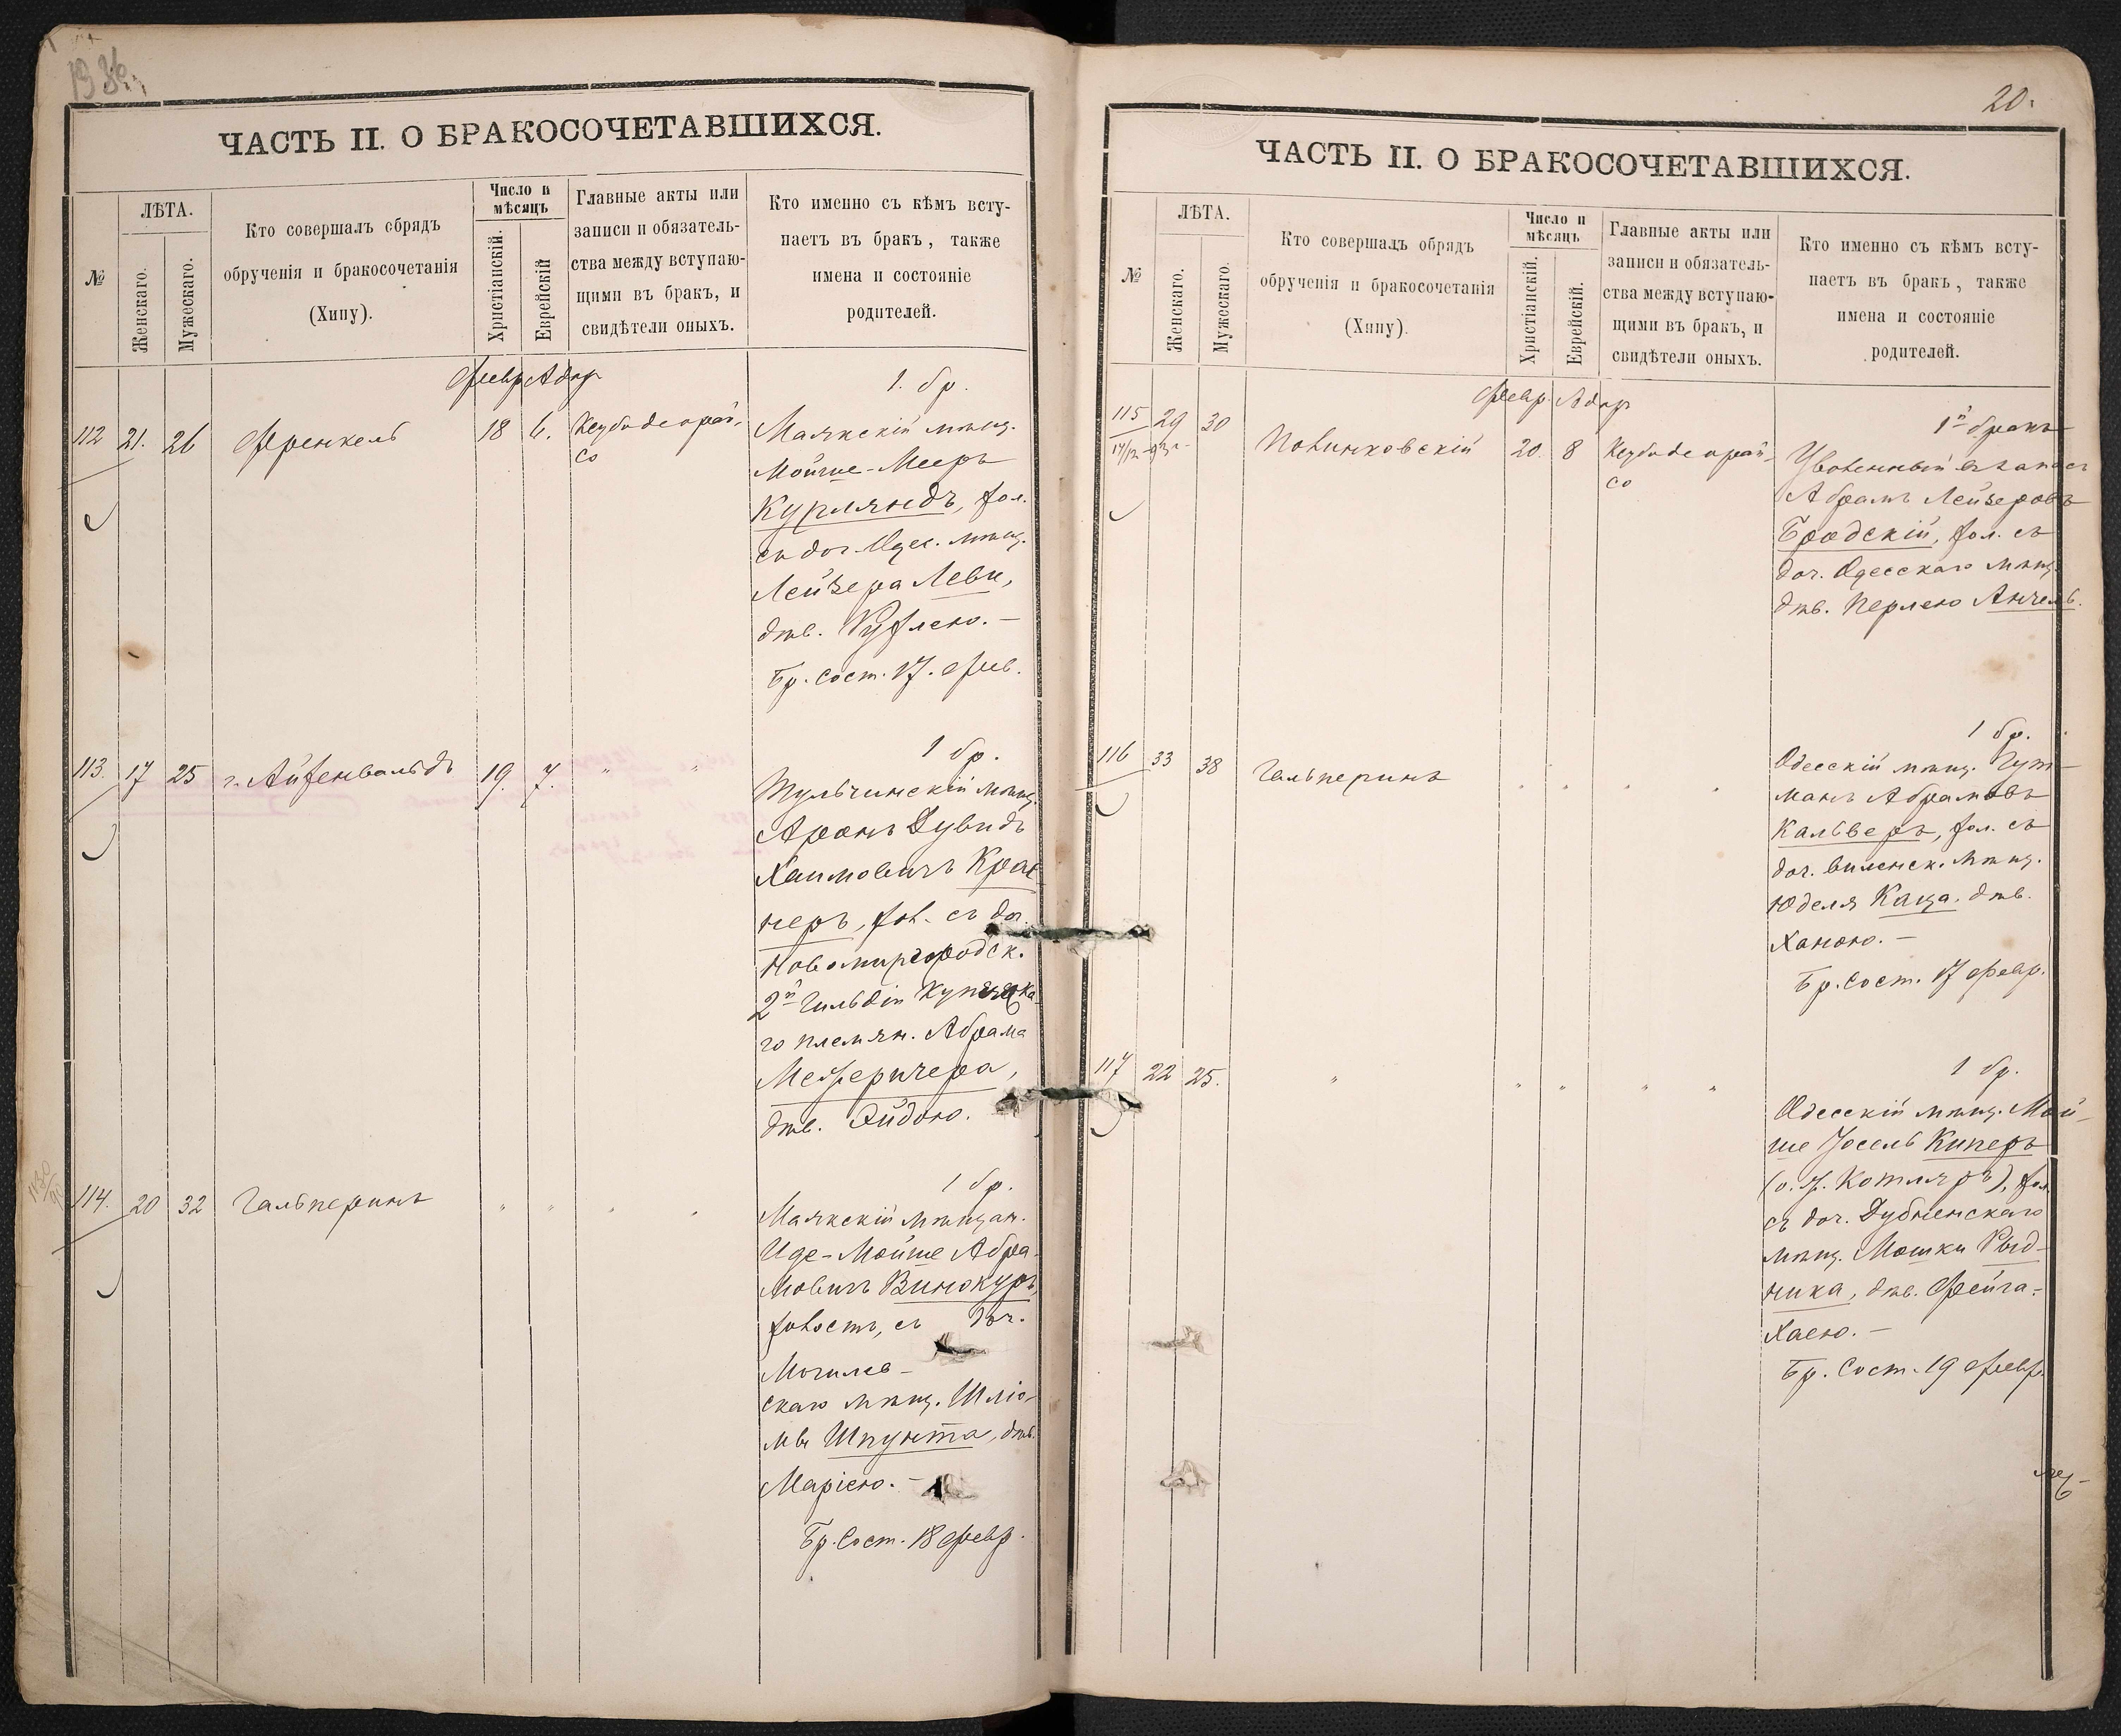 ЧАСТЬ II. О БРАКОСОЧЕТАВШИХСЯ.
№
ЛѢТА.
Женскаго.
Мужескаго.
Кто совершалъ обрядъ
обрученія и бракосочетанія
(Хипу).
Число и
мѣсяцъ
Христіанскій.
Еврейскій
Главные акты или
записи и обязатель-
ства между вступаю-
щими въ бракъ, и
свидѣтели оныхъ.
Кто именно съ кѣмъ всту-
паетъ въ бракъ, также
имена и состояніе
родителей.
Февр Адар
1. бр.
112 21. 26 Френкель 18 6.
со
Маякскій мѣщ.
Мойше-Мееръ
Курляндъ, хол.
съ доч. Одес. мѣщ.
Лейзера Леви,
дѣв. Рухлею. —
Бр. Сост. 17. Фев.
1 бр.
113. 17 25 г. Айзенвальдъ 19. 7. " "
Тульчинскій мѣщ.
Аронъ Дувидъ
Хаимовичъ Крас-
неръ, хол. съ доч.
Новомиргородск.
2й Гильдіи Купческа-
го племян. Абрама
Межеричера,
дѣв. Эйдою.
1 бр.
114. 20 32 Гальперинъ " " " "
Маякскій мѣщан.
Иде-Мойше Абра-
мовичъ Винокуръ,
холост, съ доч.
Могилев-
скаго мѣщ. Шліо-
мы Шпунта, дѣв.
Маріею. —
Бр. Сост. 18 Февр.
20.
ЧАСТЬ II. О БРАКОСОЧЕТАВШИХСЯ.
№
ЛѢТА.
Женскаго.
Мужескаго.
Кто совершалъ обрядъ
обрученія и бракосочетанія
(Хипу).
Число и
мѣсяцъ
Христіанскій.
Еврейскій.
Главные акты или
записи и обязатель-
ства между вступаю-
щими въ бракъ, и
свидѣтели оныхъ.
Кто именно съ кѣмъ всту-
паетъ въ бракъ, также
имена и состояніе
родителей.
Февр. Адар
1й бракъ
115 29 30 20. 8
со
Уволенный въ запасъ
Абрамъ Лейзеровъ
Бродскій, хол. съ
доч. Одесскаго мѣщ.
дѣв. Перлею Анчель.
1 бр.
116 33 38 Гальперинъ " " " "
Одесскій мѣщ. Гут-
манъ Абрамовъ
Кальверъ, хол. съ
доч. Виленск. мѣщ.
Юделя Каца. дѣв.
Ханою. —
Бр. Сост. 17 Февр.
1 бр.
117 22 25. " " " " "
Одесскій мѣщ. Мой-
ше Іосель Киперъ
(о. ж. Котляръ), хол.
съ доч. Дубненскаго
мѣщ. Мошки Рыд-
ника, дѣв. Фейга-
Хаею. —
Бр. Сост. 19 Февр.